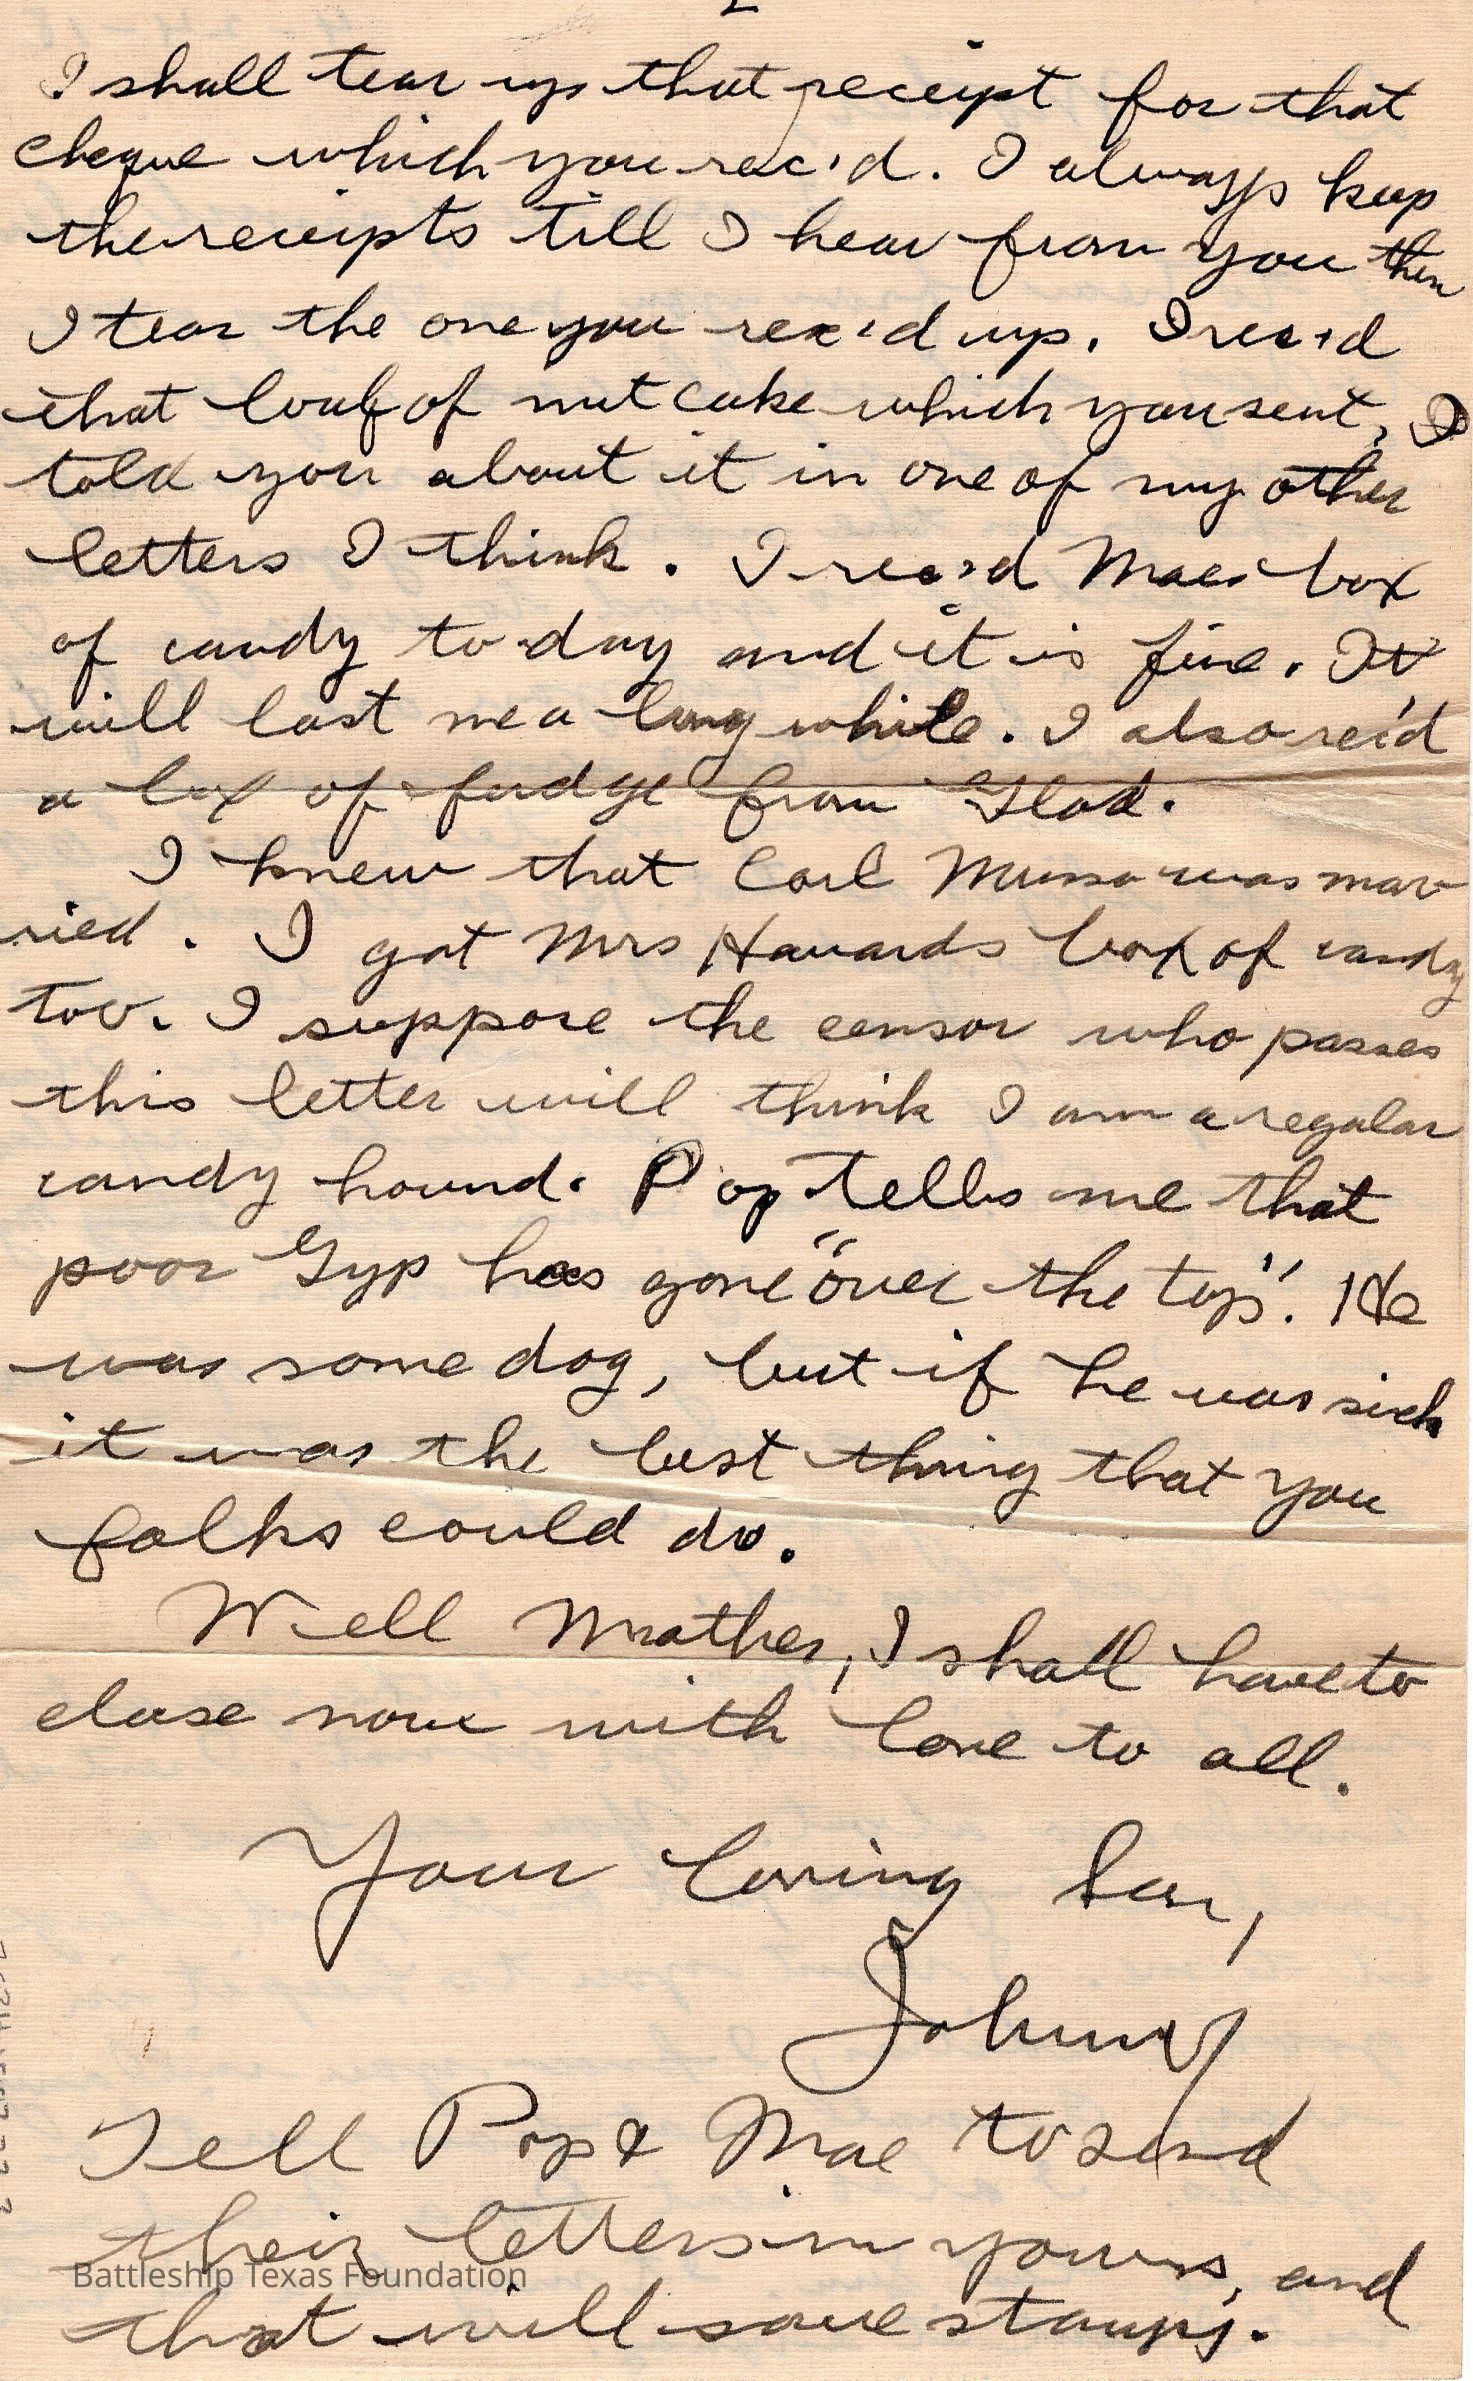 2
I shall tear up that receipt for that
cheque which you rec'd. I always keep
the receipts till I hear from you then
I tear the one you rec'd up. I rec'd
that loaf of nut cake which you sent, I
told you about it in one of my other
letters I think. I rec'd Maes box
of candy to-day and it is fine. It
will last me a long while. I also rec'd
a box of fudge from Glad.
I knew that Carl was mar
ried. I got Mrs Havards box of candy
too. I suppose the censor who passes
this letter will think I am a regular
candy hound. Pop tells me that
poor Gyp has gone "over the top". He
was some dog, but if he was sick
it was the best thing that you
folks could do.
Well Mother, I shall have to
close now with love to all.
Your loving Son,
Johnny
Tell Pop & Mae to send
their letters in yours, and
that will save stamps.
Battleship Texas Foundation